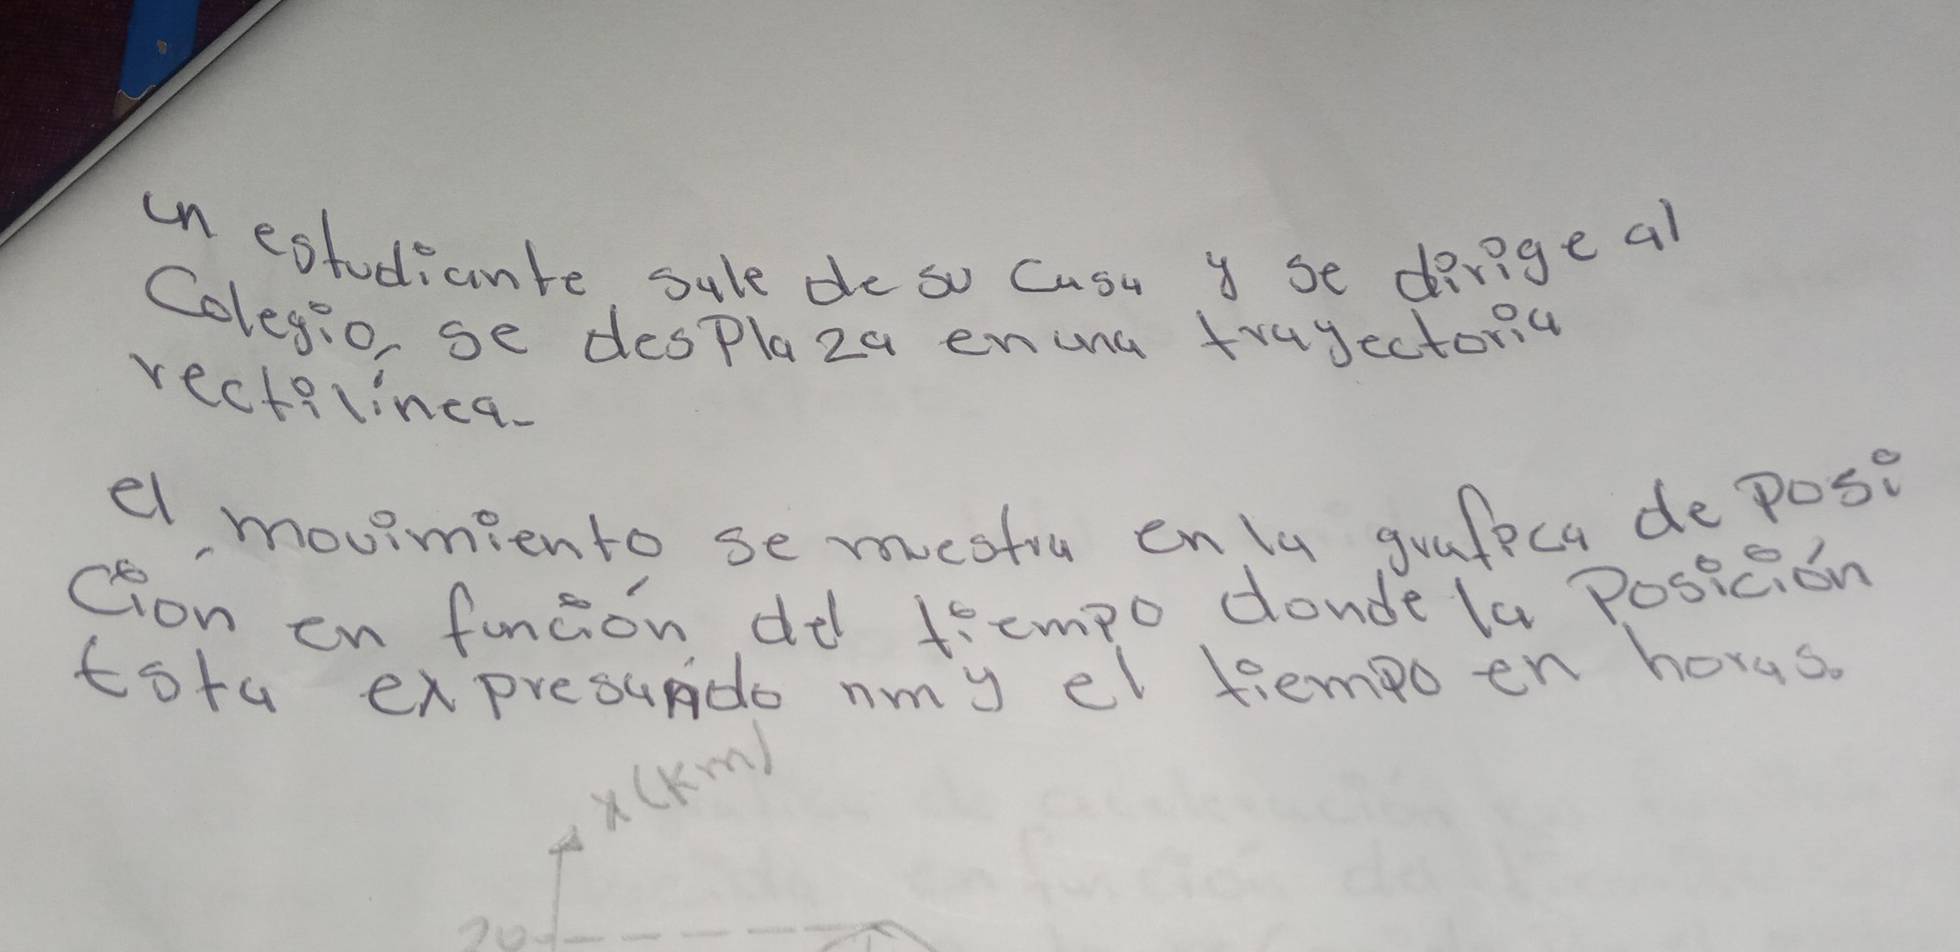 un estudiante, sale de su casa y se dirige al
Colegio, se desplaza en una trayectoria
rectilínea.
el movimiento se muestra en la grafica de posi
ción en función del tiempo donde la posición
esta expresando nm y el tiempo en horas.
x(km)
20